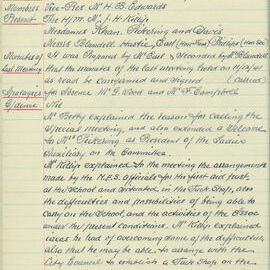 Members Vice-Pres Mr H.B. Edwards
Present The H.M. Mr J.H. Killip
Mesdames Khan. Pickering and Davis
Messrs Blundell Hartie, Earl (Hon Tres) Phillips (Hon Sec)
Minutes of It was Proposed by Mr Earl & Seconded by Mr Blundell
Last Meeting that the minutes of the last meeting held on 11/12/41
as read be confirmed and signed (Carried)
Apologies for absence Mrs G. Wood and Mr F. Campbell
C/dence Nil
Mr Betty explained the reason for calling the
special meeting, and also extended a welcome
to Mrs Pickering as President of the Ladies
Auxiliary on the Committee.
Mr Killip explained to the meeting the arrangements
made by the N.E.S. officials for the first aid post,
at the School and situated in the Tuck Shop, also
the difficulties and possibilities of being able to
carry on the School, and the activities of the Assoc
under the present conditions. Mr Killip explained
ideas he had of overcoming some of the difficulties
also that he may be able to arrange with the
City Council to establish a Tuck Shop on the